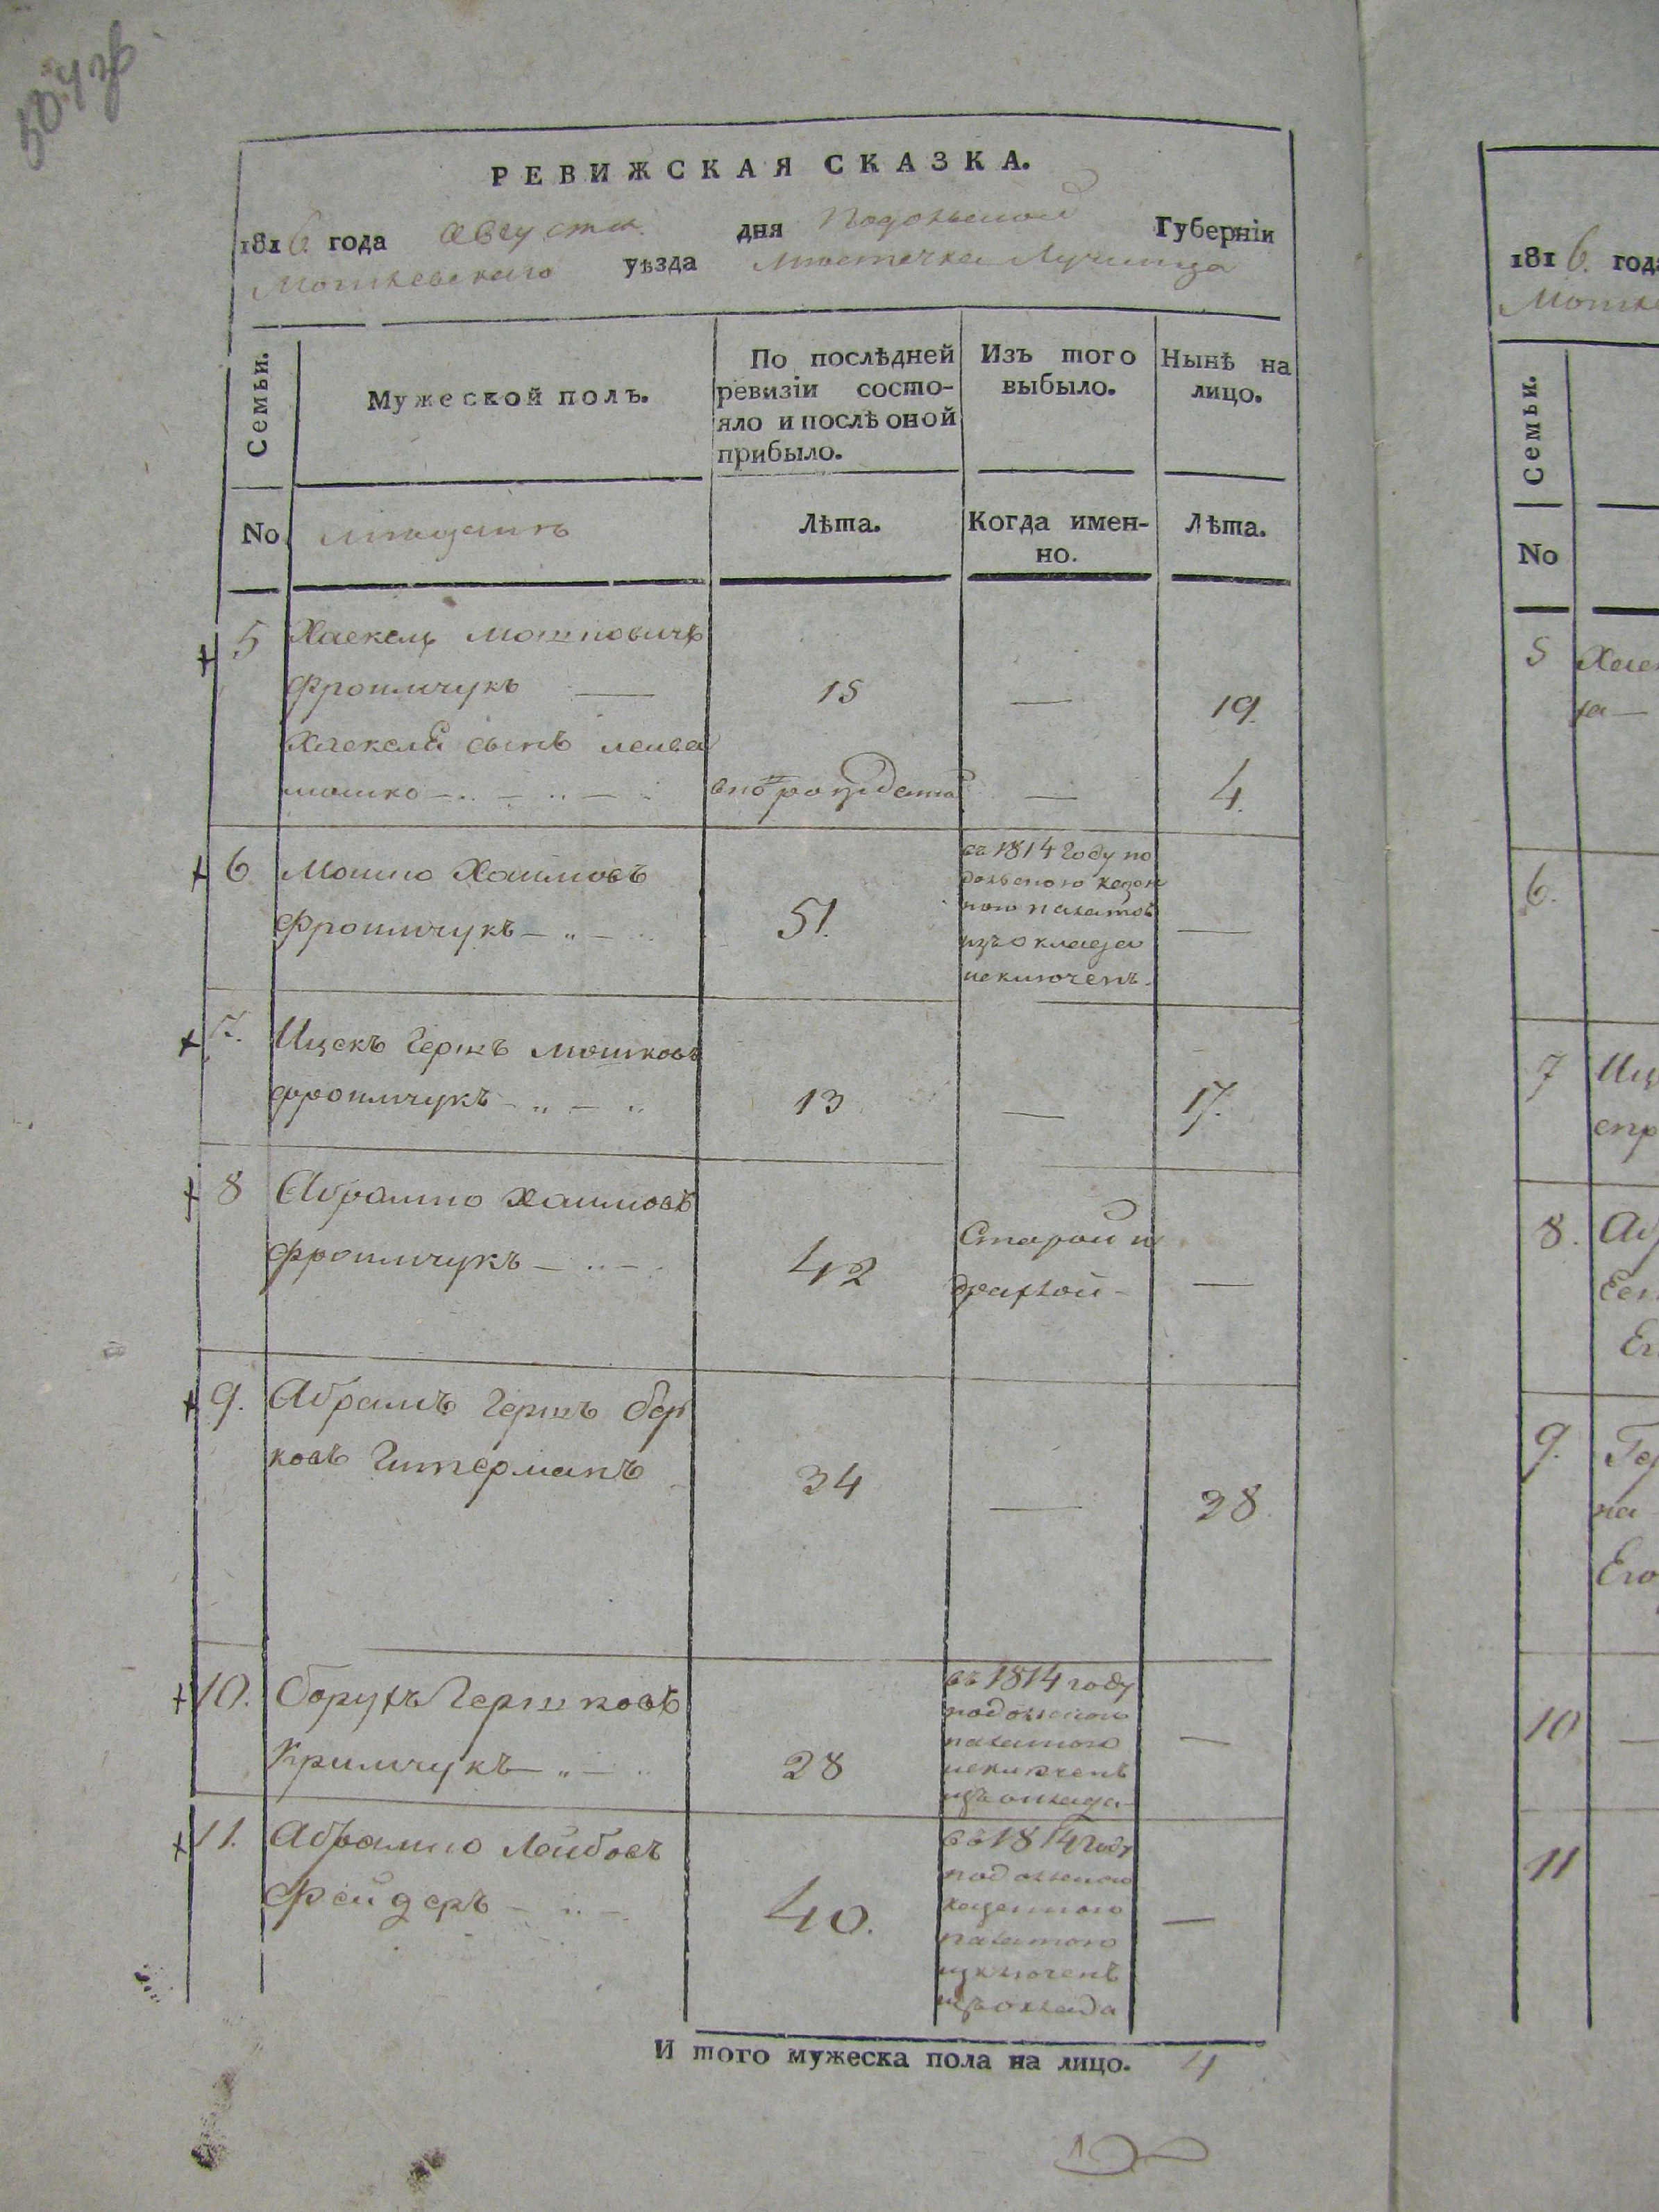 504 зв
РЕВИЖСКАЯ СКАЗКА.
1816. года Августа дня Подольской Губерніи
Могилевского уѣзда Местечка Лучинца
Семьи.
Мужеской полъ.
По послѣдней ревизіи состо-
яло и послѣ оной прибыло.
Изъ того выбыло.
Нынѣ на лицо.
No
мещанъ
Лѣта.
Когда имен-
но.
Лѣта.
5 Хаскель Мошковичъ
Фроимчукъ — 15 — 19.
Хаскеля сынъ лейба
мошко — новорожденой — 4.
6 Мошко Хаимовъ
Фроимчукъ — 51. —
въ 1814 Году по
дольского казен
ною палатою
изъ оклада
исключенъ.
7. Ицекъ Гершъ Мошковъ
фроимчукъ — 13 — 17.
8 Абрамко Хаимовъ
фроимчукъ — 42 —
Старой и
драхлой —
9. Абрамъ Гершъ бер
ковъ Гитерманъ 34 — 38
10. Борухъ Гершковъ
Кримчукъ — 28 —
въ 1814 году
подольскою
палатою
исключенъ
изъ оклада
11. Абрамко Лейбовъ
Фейдеръ — 40. —
въ 1814 Году
подольскою
казенною
палатою
изключенъ
изъ оклада
И того мужеска пола на лицо. 4
1816. года
Семьи.
No
5
6.
7
8.
9.
10
11